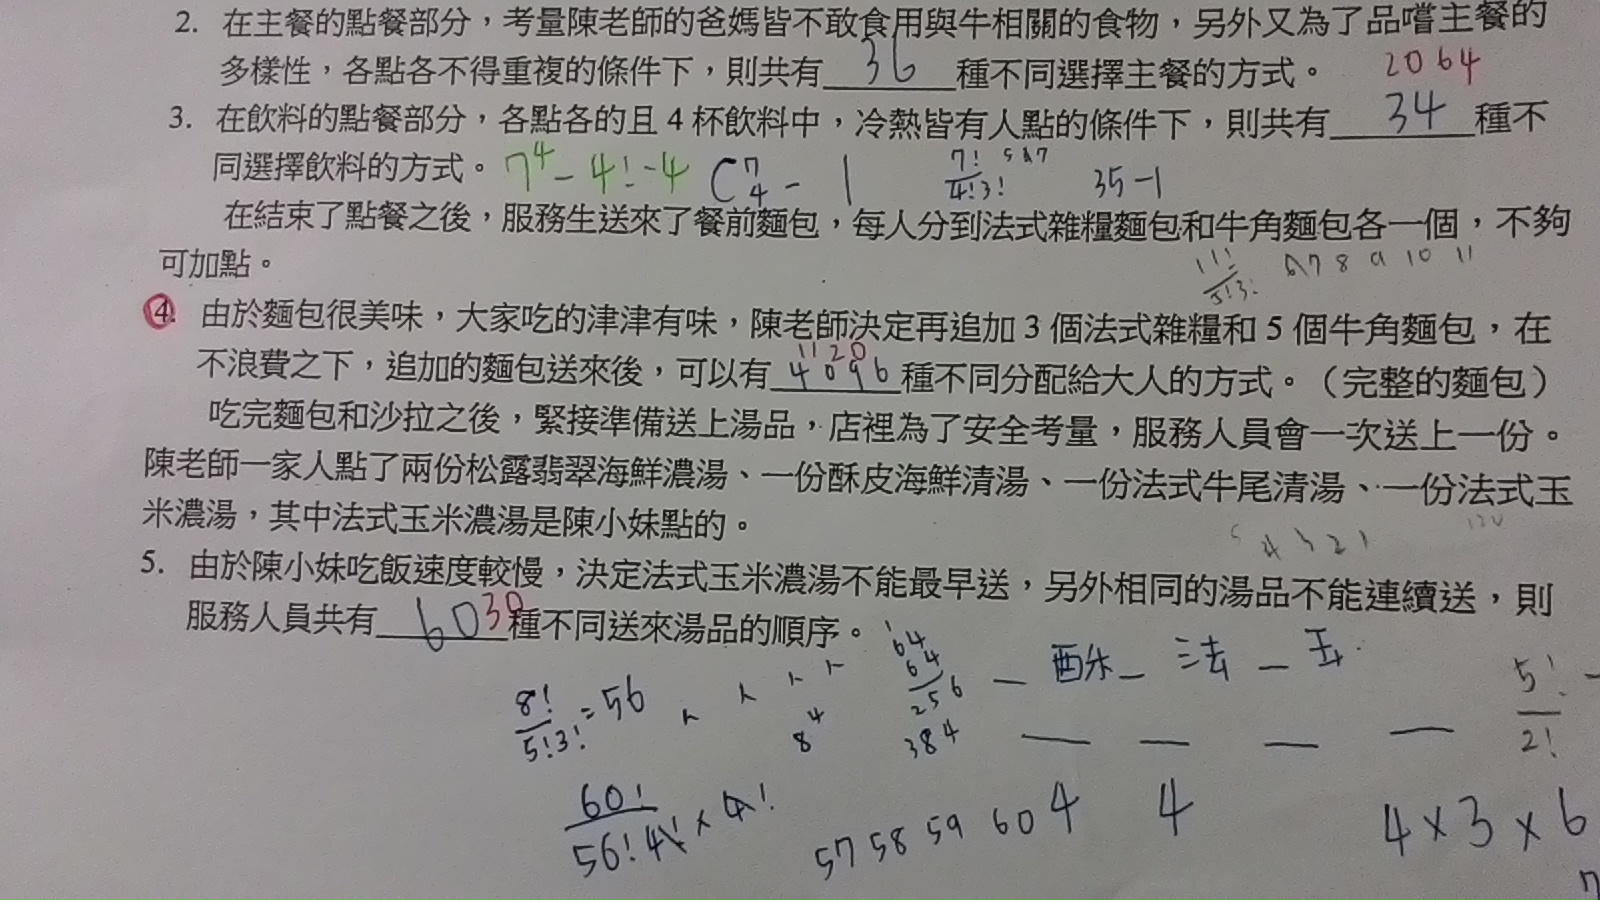 2. 在主餐的點餐部分，考量陳老師的爸媽皆不敢食用與牛相關的食物，另外又為了品嚐主餐的
多樣性，各點各不得重複的條件下，則共有 36 種不同選擇主餐的方式。 2064
3. 在飲料的點餐部分，各點各的且 4 杯飲料中，冷熱皆有人點的條件下，則共有 34 種不
同選擇飲料的方式。 7⁴-4!-4 C⁷₄ - 1 7!/4!3! 567 35-1
在結束了點餐之後，服務生送來了餐前麵包，每人分到法式雜糧麵包和牛角麵包各一個，不夠
可加點。 11!/5!3! 6 7 8 9 10 11
4. 由於麵包很美味，大家吃的津津有味，陳老師決定再追加 3 個法式雜糧和 5 個牛角麵包，在
1120
不浪費之下，追加的麵包送來後，可以有 4096 種不同分配給大人的方式。（完整的麵包）
吃完麵包和沙拉之後，緊接準備送上湯品，店裡為了安全考量，服務人員會一次送上一份。
陳老師一家人點了兩份松露翡翠海鮮濃湯、一份酥皮海鮮清湯、一份法式牛尾清湯、一份法式玉
米濃湯，其中法式玉米濃湯是陳小妹點的。
5 4 3 2 1 120
5. 由於陳小妹吃飯速度較慢，決定法式玉米濃湯不能最早送，另外相同的湯品不能連續送，則
服務人員共有 60 30 種不同送來湯品的順序。
8!/5!3! = 56 8⁴ 64 64 256 384 — 酥 — 法 — 玉 5!/2! -
60!/56!4! × 4! 57 58 59 60 4 4 4×3×6